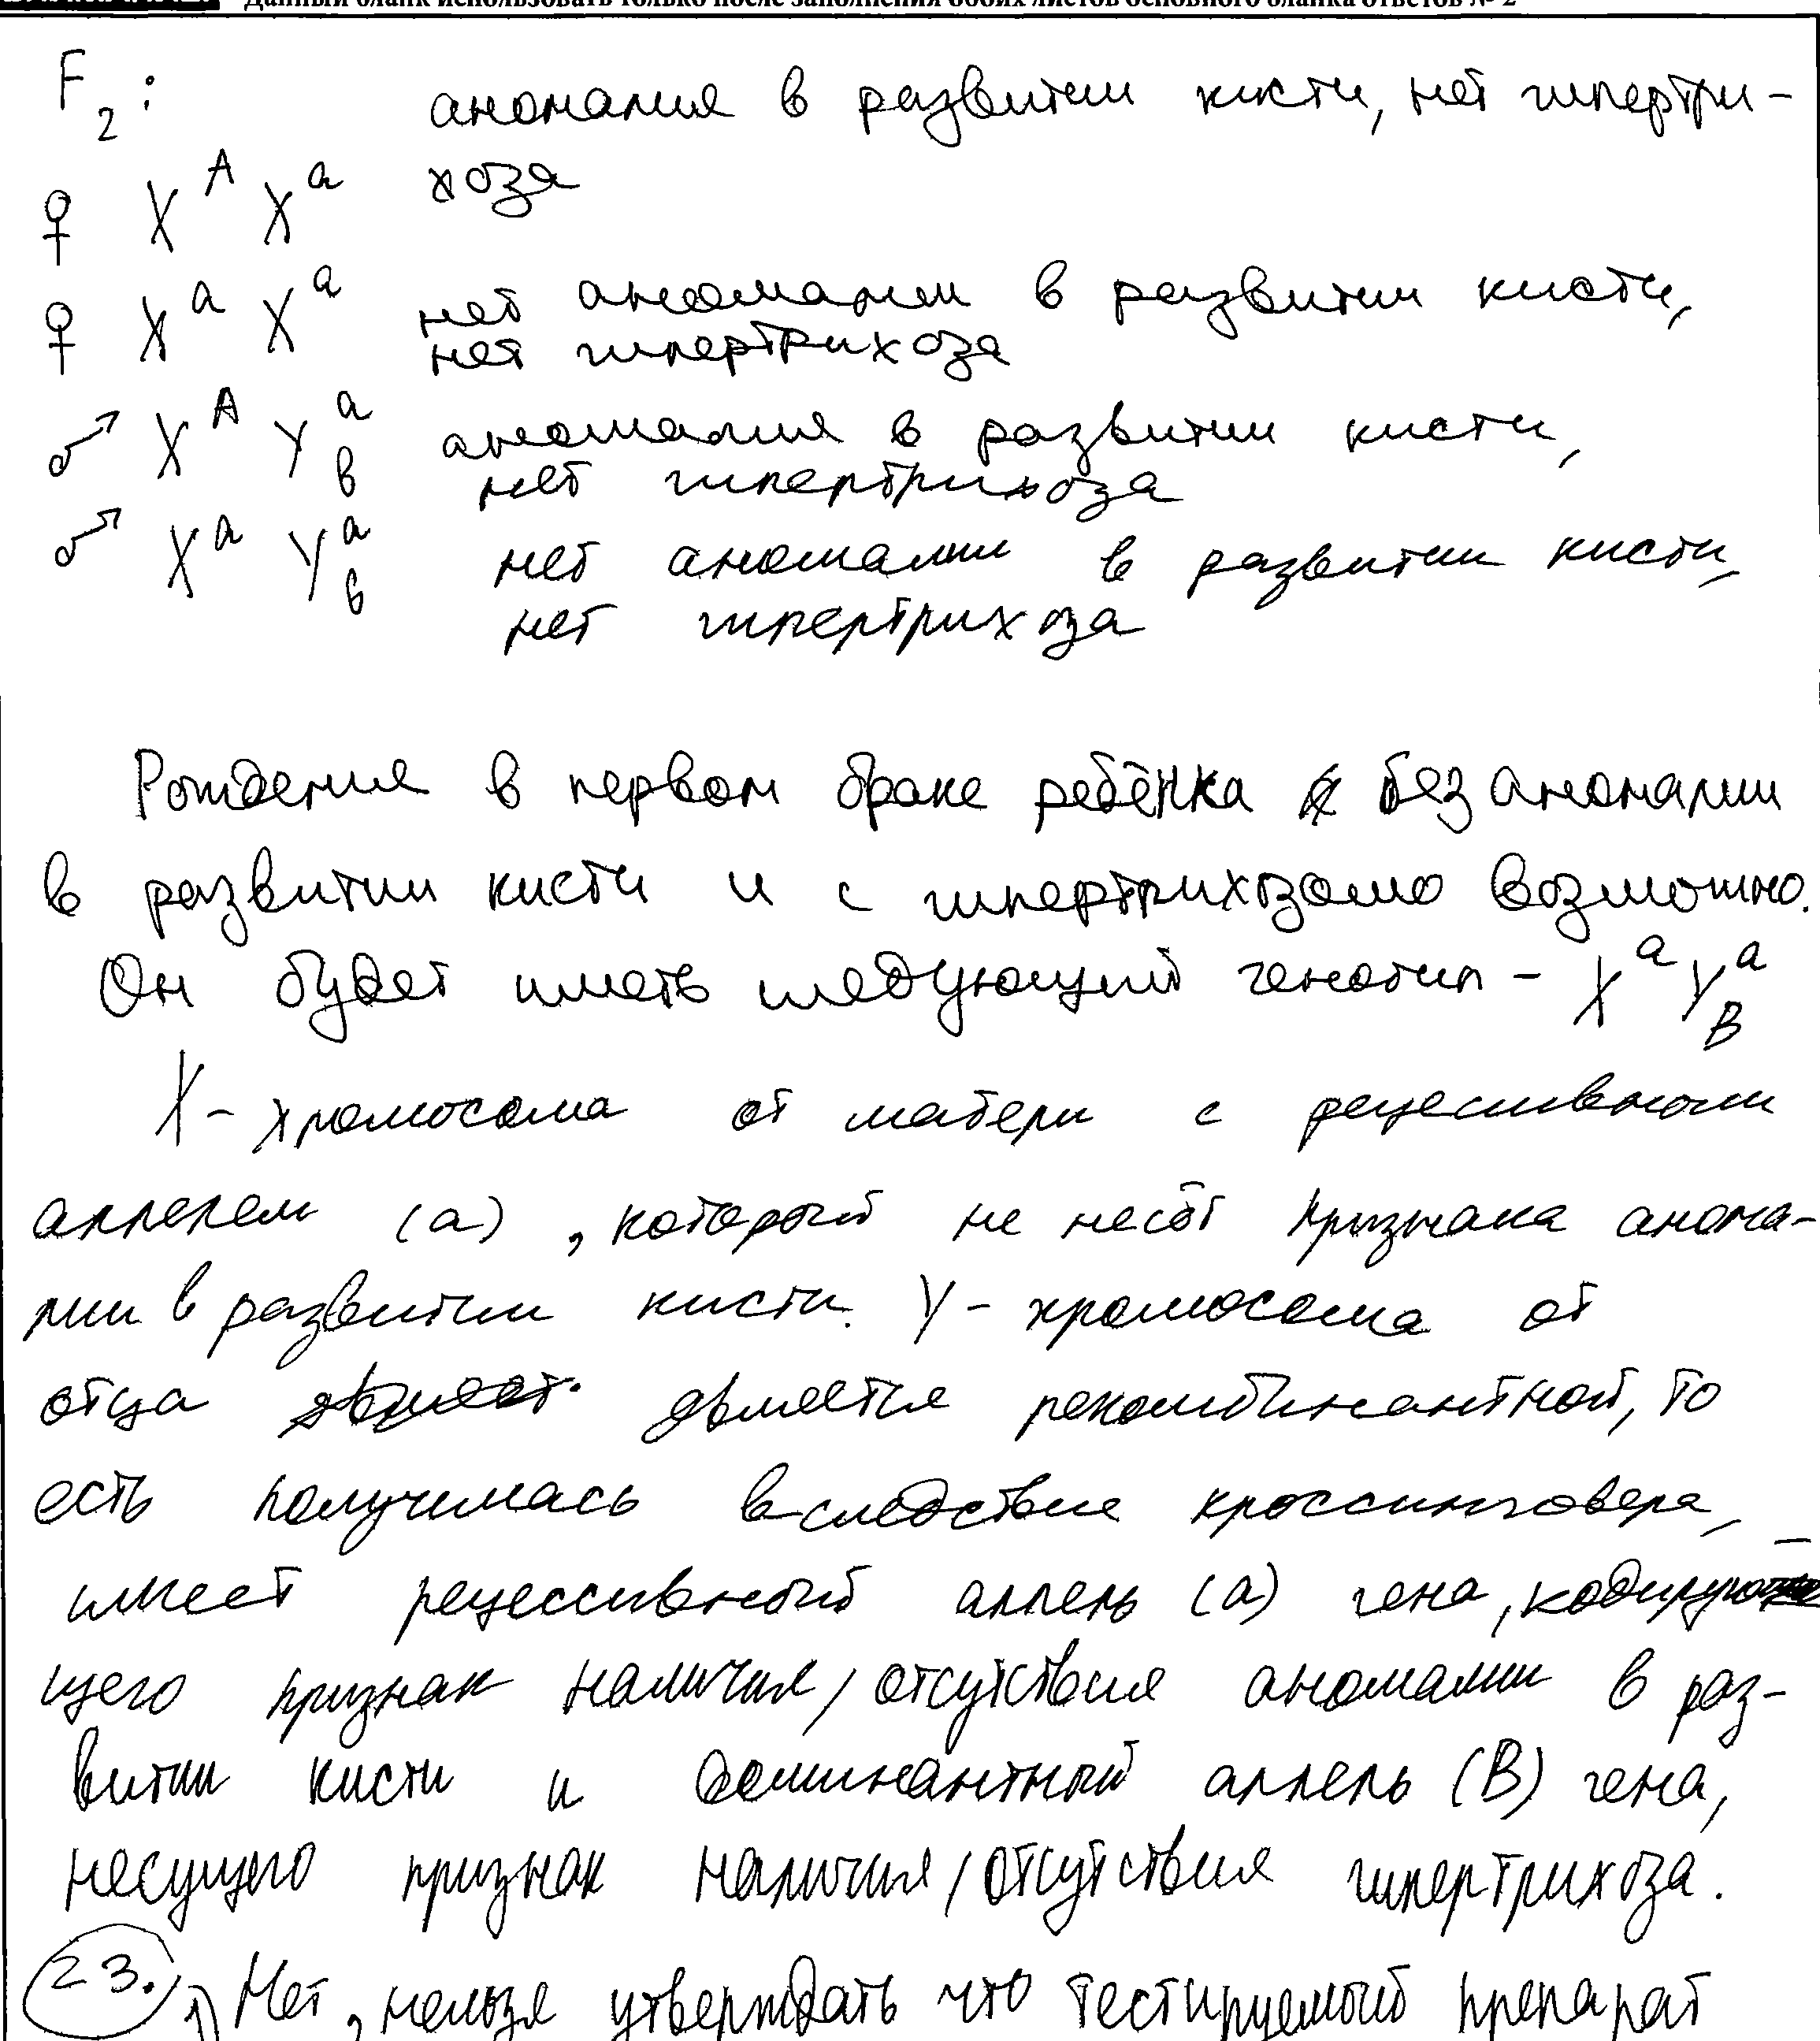 Данный бланк использовать только после заполнения обоих листов основного бланка ответов № 2
F2: аномалия в развитии кисти, нет гипертри-
♀ X^A X^a хоза
♀ X^a X^a нет аномалии в развитии кисти,
нет гипертрихоза
♂ X^A Y^a_b аномалия в развитии кисти,
нет гипертрихоза
♂ X^a Y^a_b нет аномалии в развитии кисти,
нет гипертрихоза
Рождение в первом браке ребёнка без аномалии
в развитии кисти и с гипертрихозомо возможно.
Он будет иметь следующий генотип - X^a Y^a_B
X - хромосома от матери с рецесивным
аллелем (a), который не несёт признака анома-
лии в развитии кисти. Y - хромосома от
отца является рекомбинантной, то
есть получилась вследствие кроссинговера,
имеет рецессивный аллель (a) гена, кодирую-
щего признак наличия/отсутствия аномалии в раз-
витии кисти и доминантный аллель (B) гена,
несущего признак наличия/отсутствия гипертрихоза.
23. 1) Нет, нельзя утверждать что тестируемый препарат